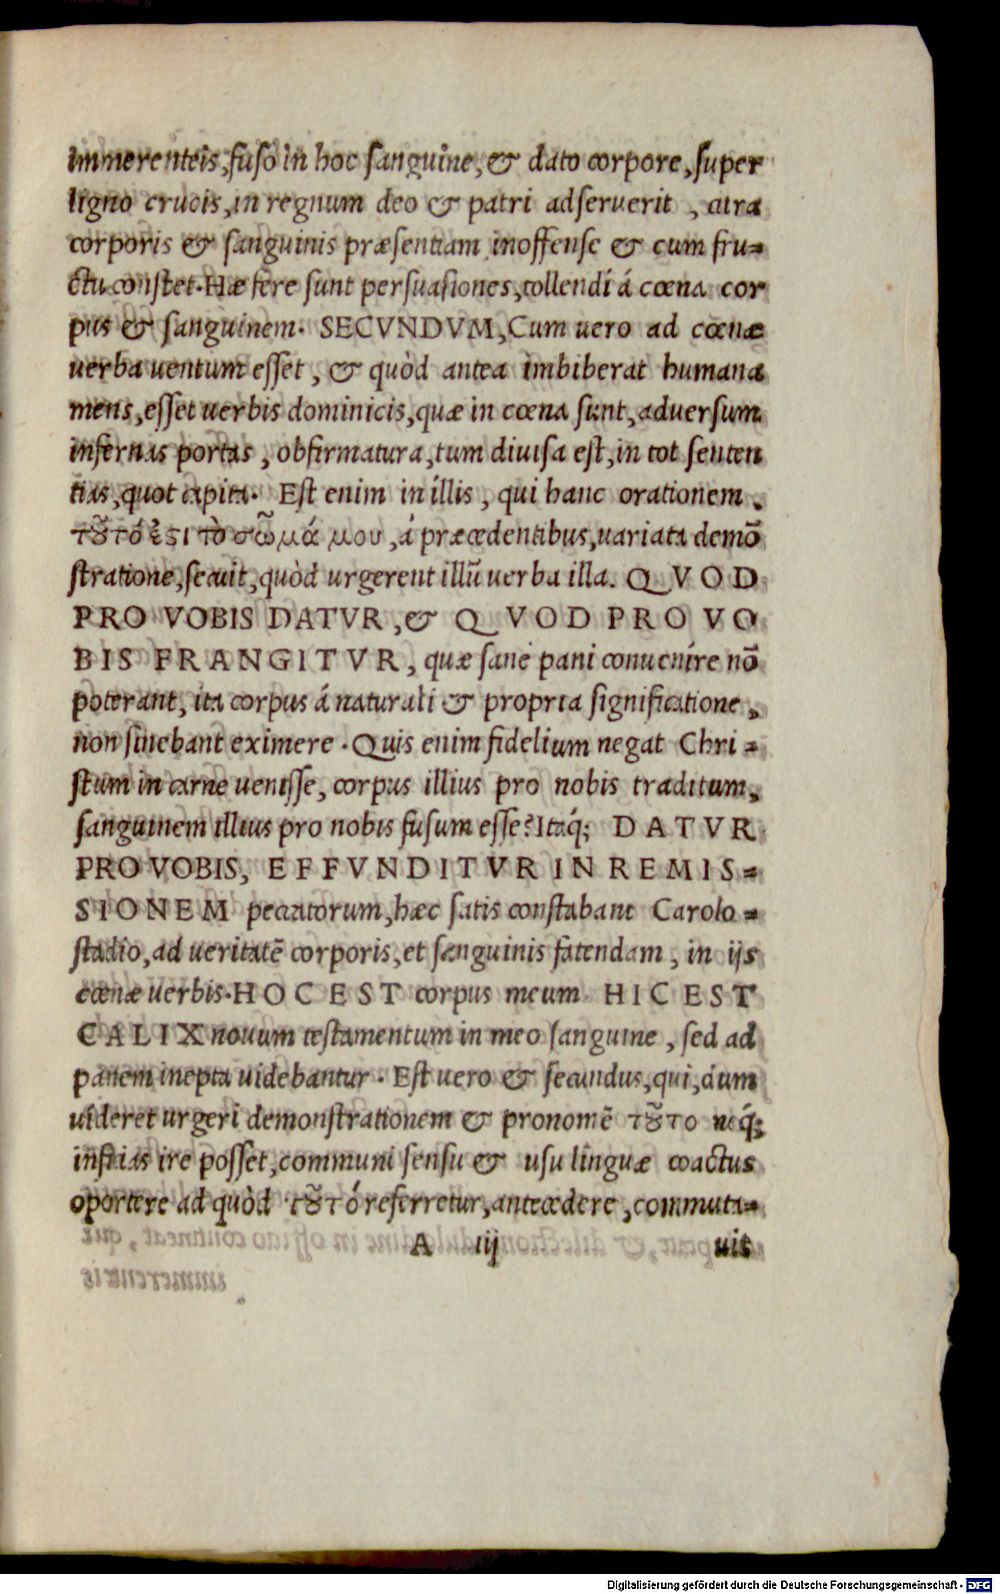 immerenteis, fuso in hoc sanguine, & dato corpore, super
ligno crucis, in regnum deo & patri adseruerit, citra
corporis & sanguinis præsentiam inoffense & cum fru-
ctu constet. Hæ fere sunt persuasiones, tollendi á cœna cor
pus & sanguinem. SECVNDVM, Cum uero ad cœnæ
uerba uentum esset, & quòd antea imbiberat humana
mens, esset uerbis dominicis, quæ in cœna sunt, aduersum
infernas portas, obfirmatura, tum diuisa est, in tot senten
tias, quot capita. Est enim in illis, qui hanc orationem.
τ̃ȣτό ἐςι τὸ σῶμά μου, á præcedentibus, uariata demõ
stratione, secuit, quòd urgerent illũ uerba illa. QVOD
PRO VOBIS DATVR, & QVOD PRO VO
BIS FRANGITVR, quæ sane pani conueníre nõ
poterant, ita corpus á naturali & propria significatione,
non sinebant eximere. Quis enim fidelium negat Chri-
stum in carne uenisse, corpus illius pro nobis traditum,
sanguinem illius pro nobis fusum esse? Itaq́; DATVR
PRO VOBIS, EFFVNDITVR IN REMIS-
SIONEM peccatorum, hæc satis constabant Carolo-
stadio, ad ueritatẽ corporis, et sanguinis fatendam, in ijs
cœnæ uerbis. HOC EST corpus meum HIC EST
CALIX nouum testamentum in meo sanguine, sed ad
panem inepta uidebantur. Est uero & secundus, qui, cum
uideret urgeri demonstrationem & pronomẽ τȣ̃το neq́;
inficias ire posset, communi sensu & usu linguæ coactus
oportere ad quòd τȣ̃τό referretur, antecedere, commuta-
A iij uit
Digitalisierung gefördert durch die Deutsche Forschungsgemeinschaft - DFG